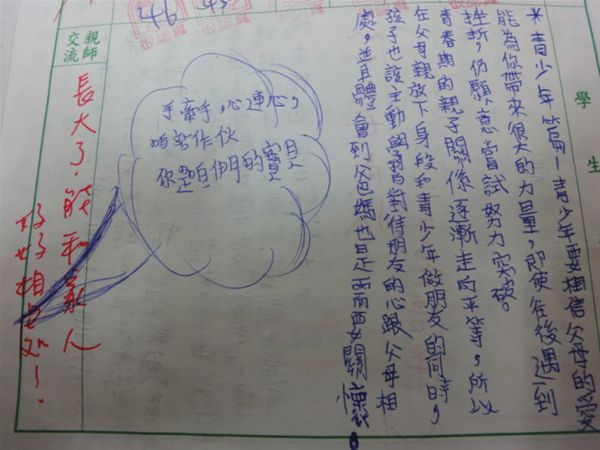 學生
＊青少年篇—青少年要相信父母的愛
能為你帶來很大的力量，即使往後遇到
挫折，仍願意嘗試努力突破。
青春期的親子關係逐漸走向平等，所以
在父母親放下身段和青少年做朋友的同時，
孩子也該主動學習對待朋友的心跟父母相
處，並且體會到爸媽也是需要關懷。
46 45
手牽手，心連心，
咱作伙
你是咱們的寶貝
親師
交流
長大了，能和家人
好好相